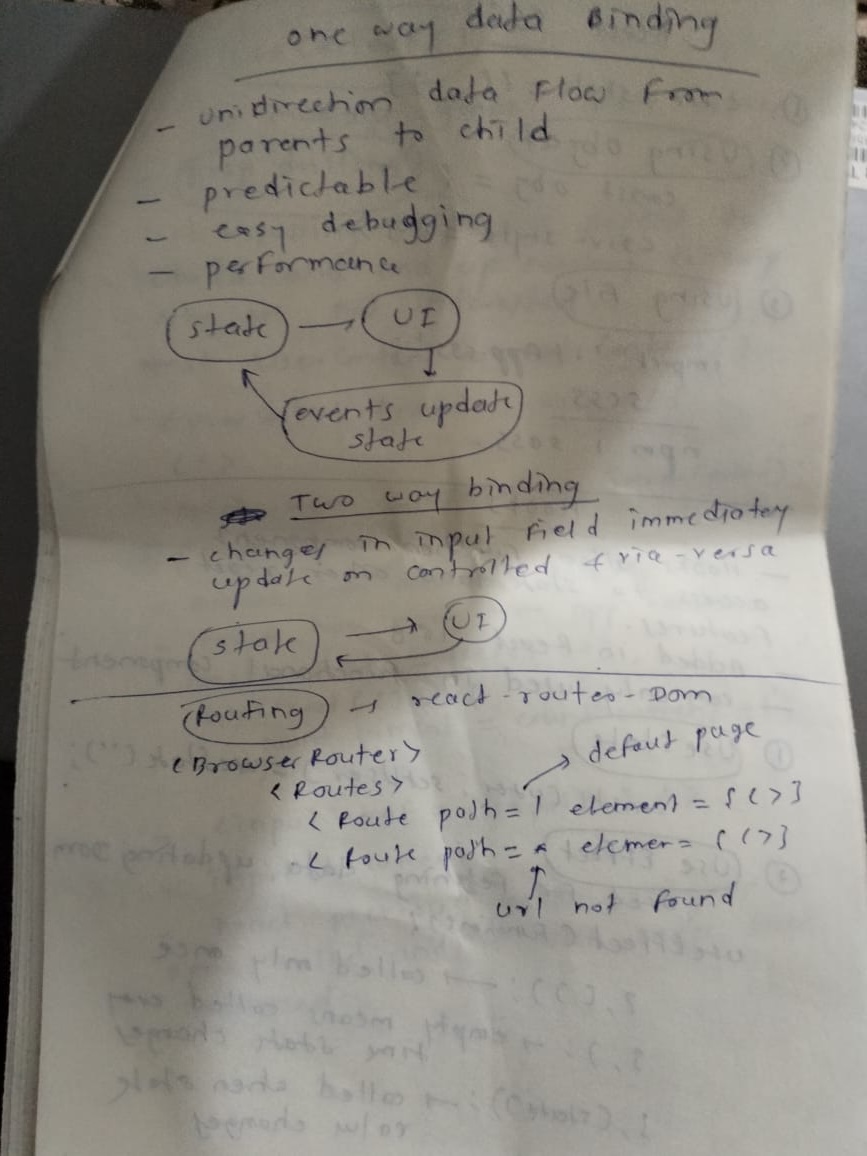 one way data Binding
- unidirection data Flow From
parents to child
- predictable
- easy debugging
- performance
state → UI
events update
state
Two way binding
- changes in input Field immediatey
update on controlled & via-versa
state UI
Routing → react-router-Dom
<BrowserRouter> defaut page
<Routes>
< Route path = / element = { <>}
< Route path = * elemer = { <>}
url not found